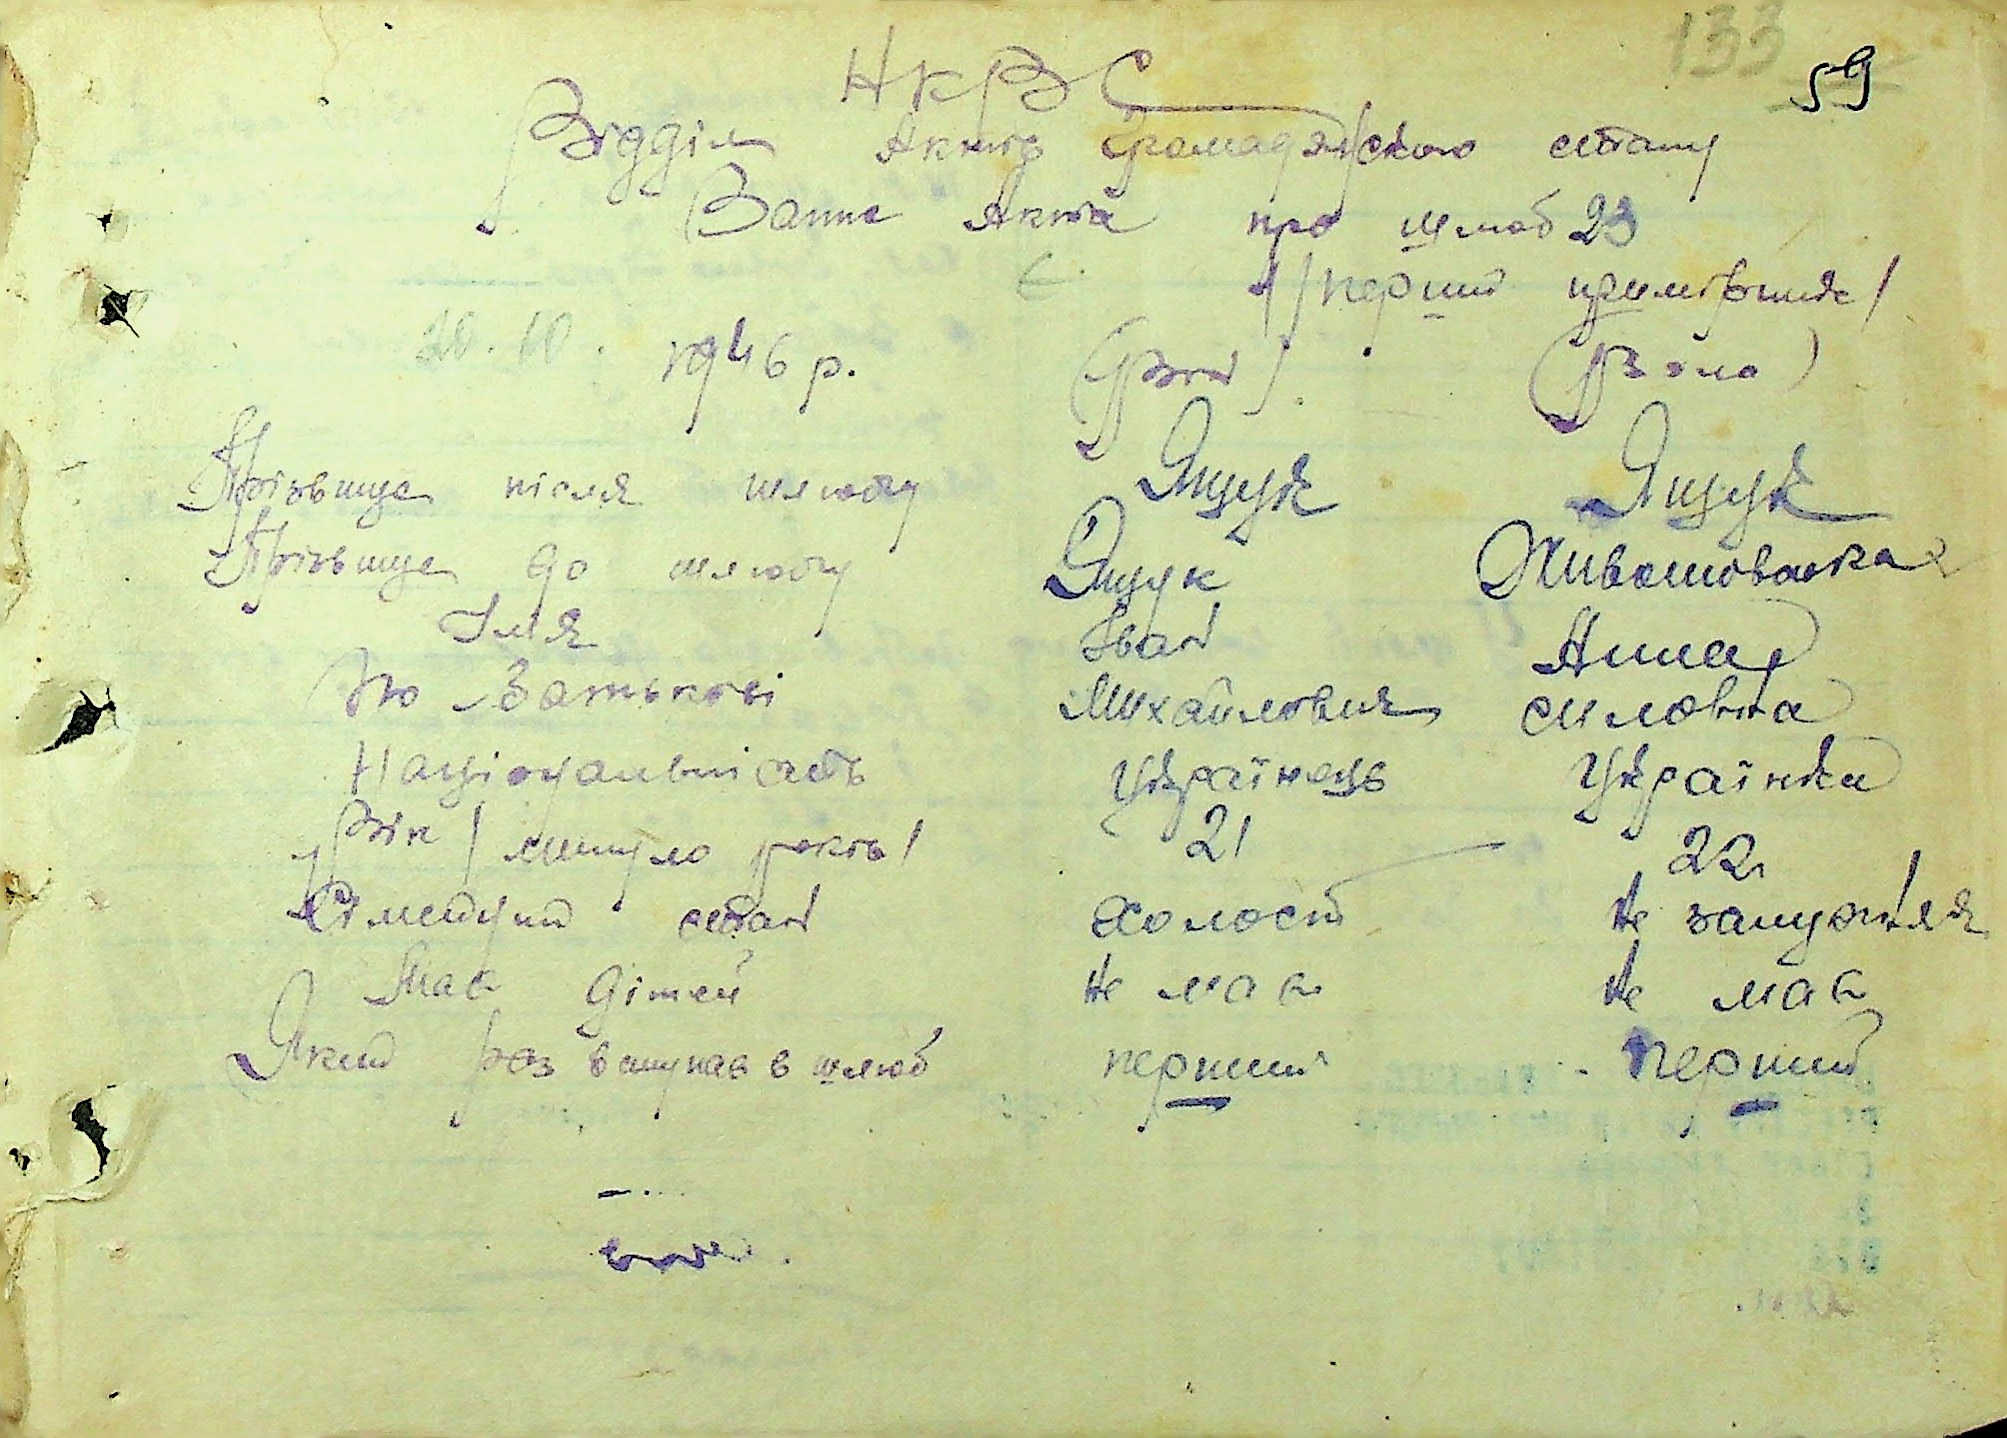 133
59
НКВС
Відділ Актів Громадянського стану
Запис Акта про шлюб 23
/перший примірник/
20.10. 1946 р. (Він) (Вона)
Прізвище після шлюбу Ящук Ящук
Прізвище до шлюбу Ящук
Імя Іван Анна
По Батькові Михайлович Силовна
Національність Українець Українка
Вік /минуло років/ 21 22
Сімейний стан холост Не замужняя
Має дітей Не має Не має
Який раз вступає в шлюб перший перший